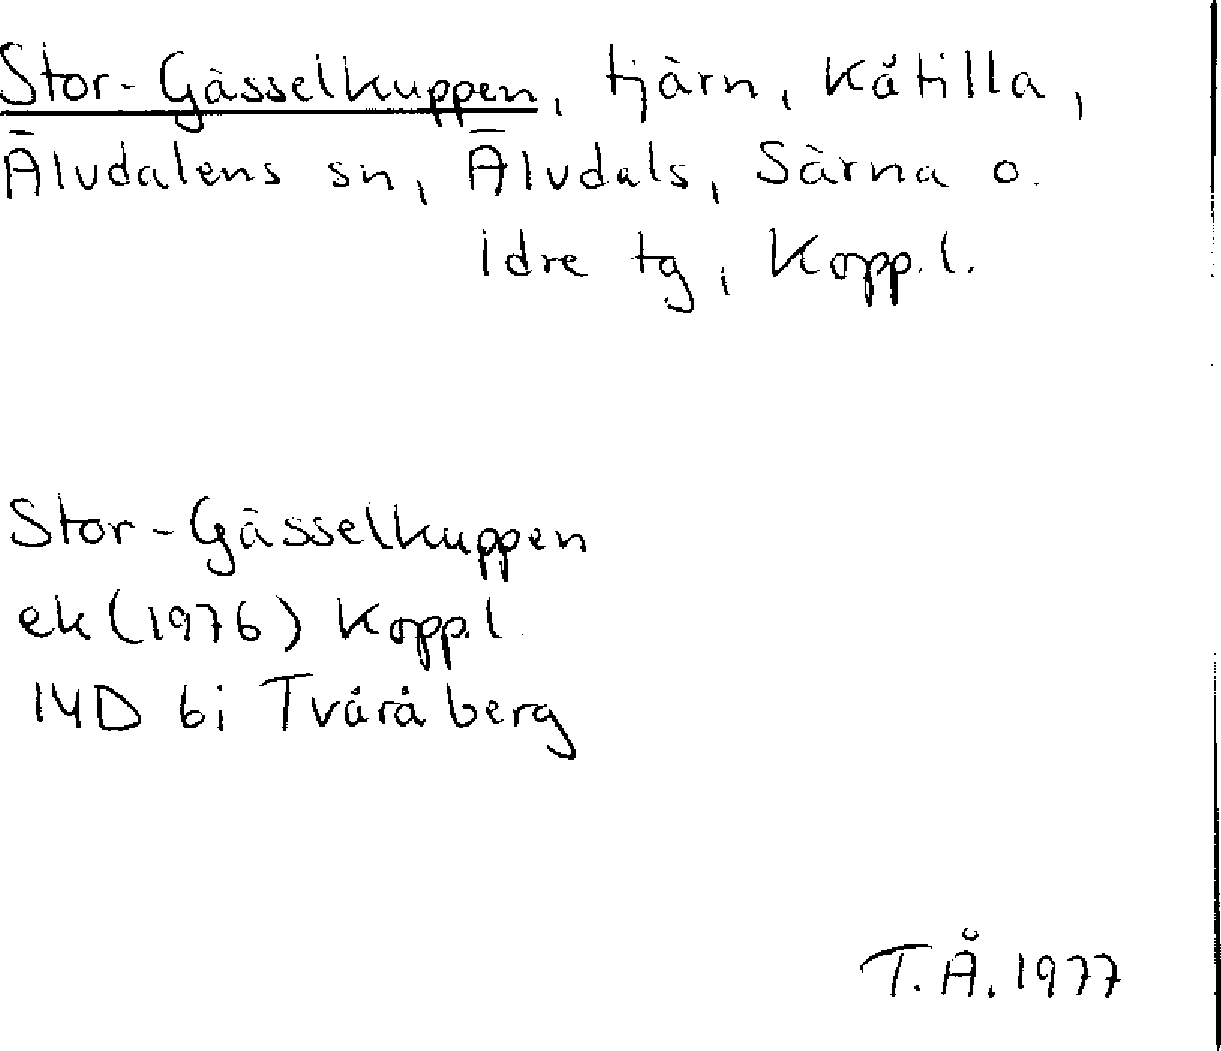 Stor-Gässelkuppen, tjärn, Kåtilla,
Älvdalens sn, Älvdals, Särna o.
Idre tg, Kopp.l.
Stor-Gässelkuppen
ek (1976) Kopp.l
14D 6i Tvåråberg
T.Å. 1977